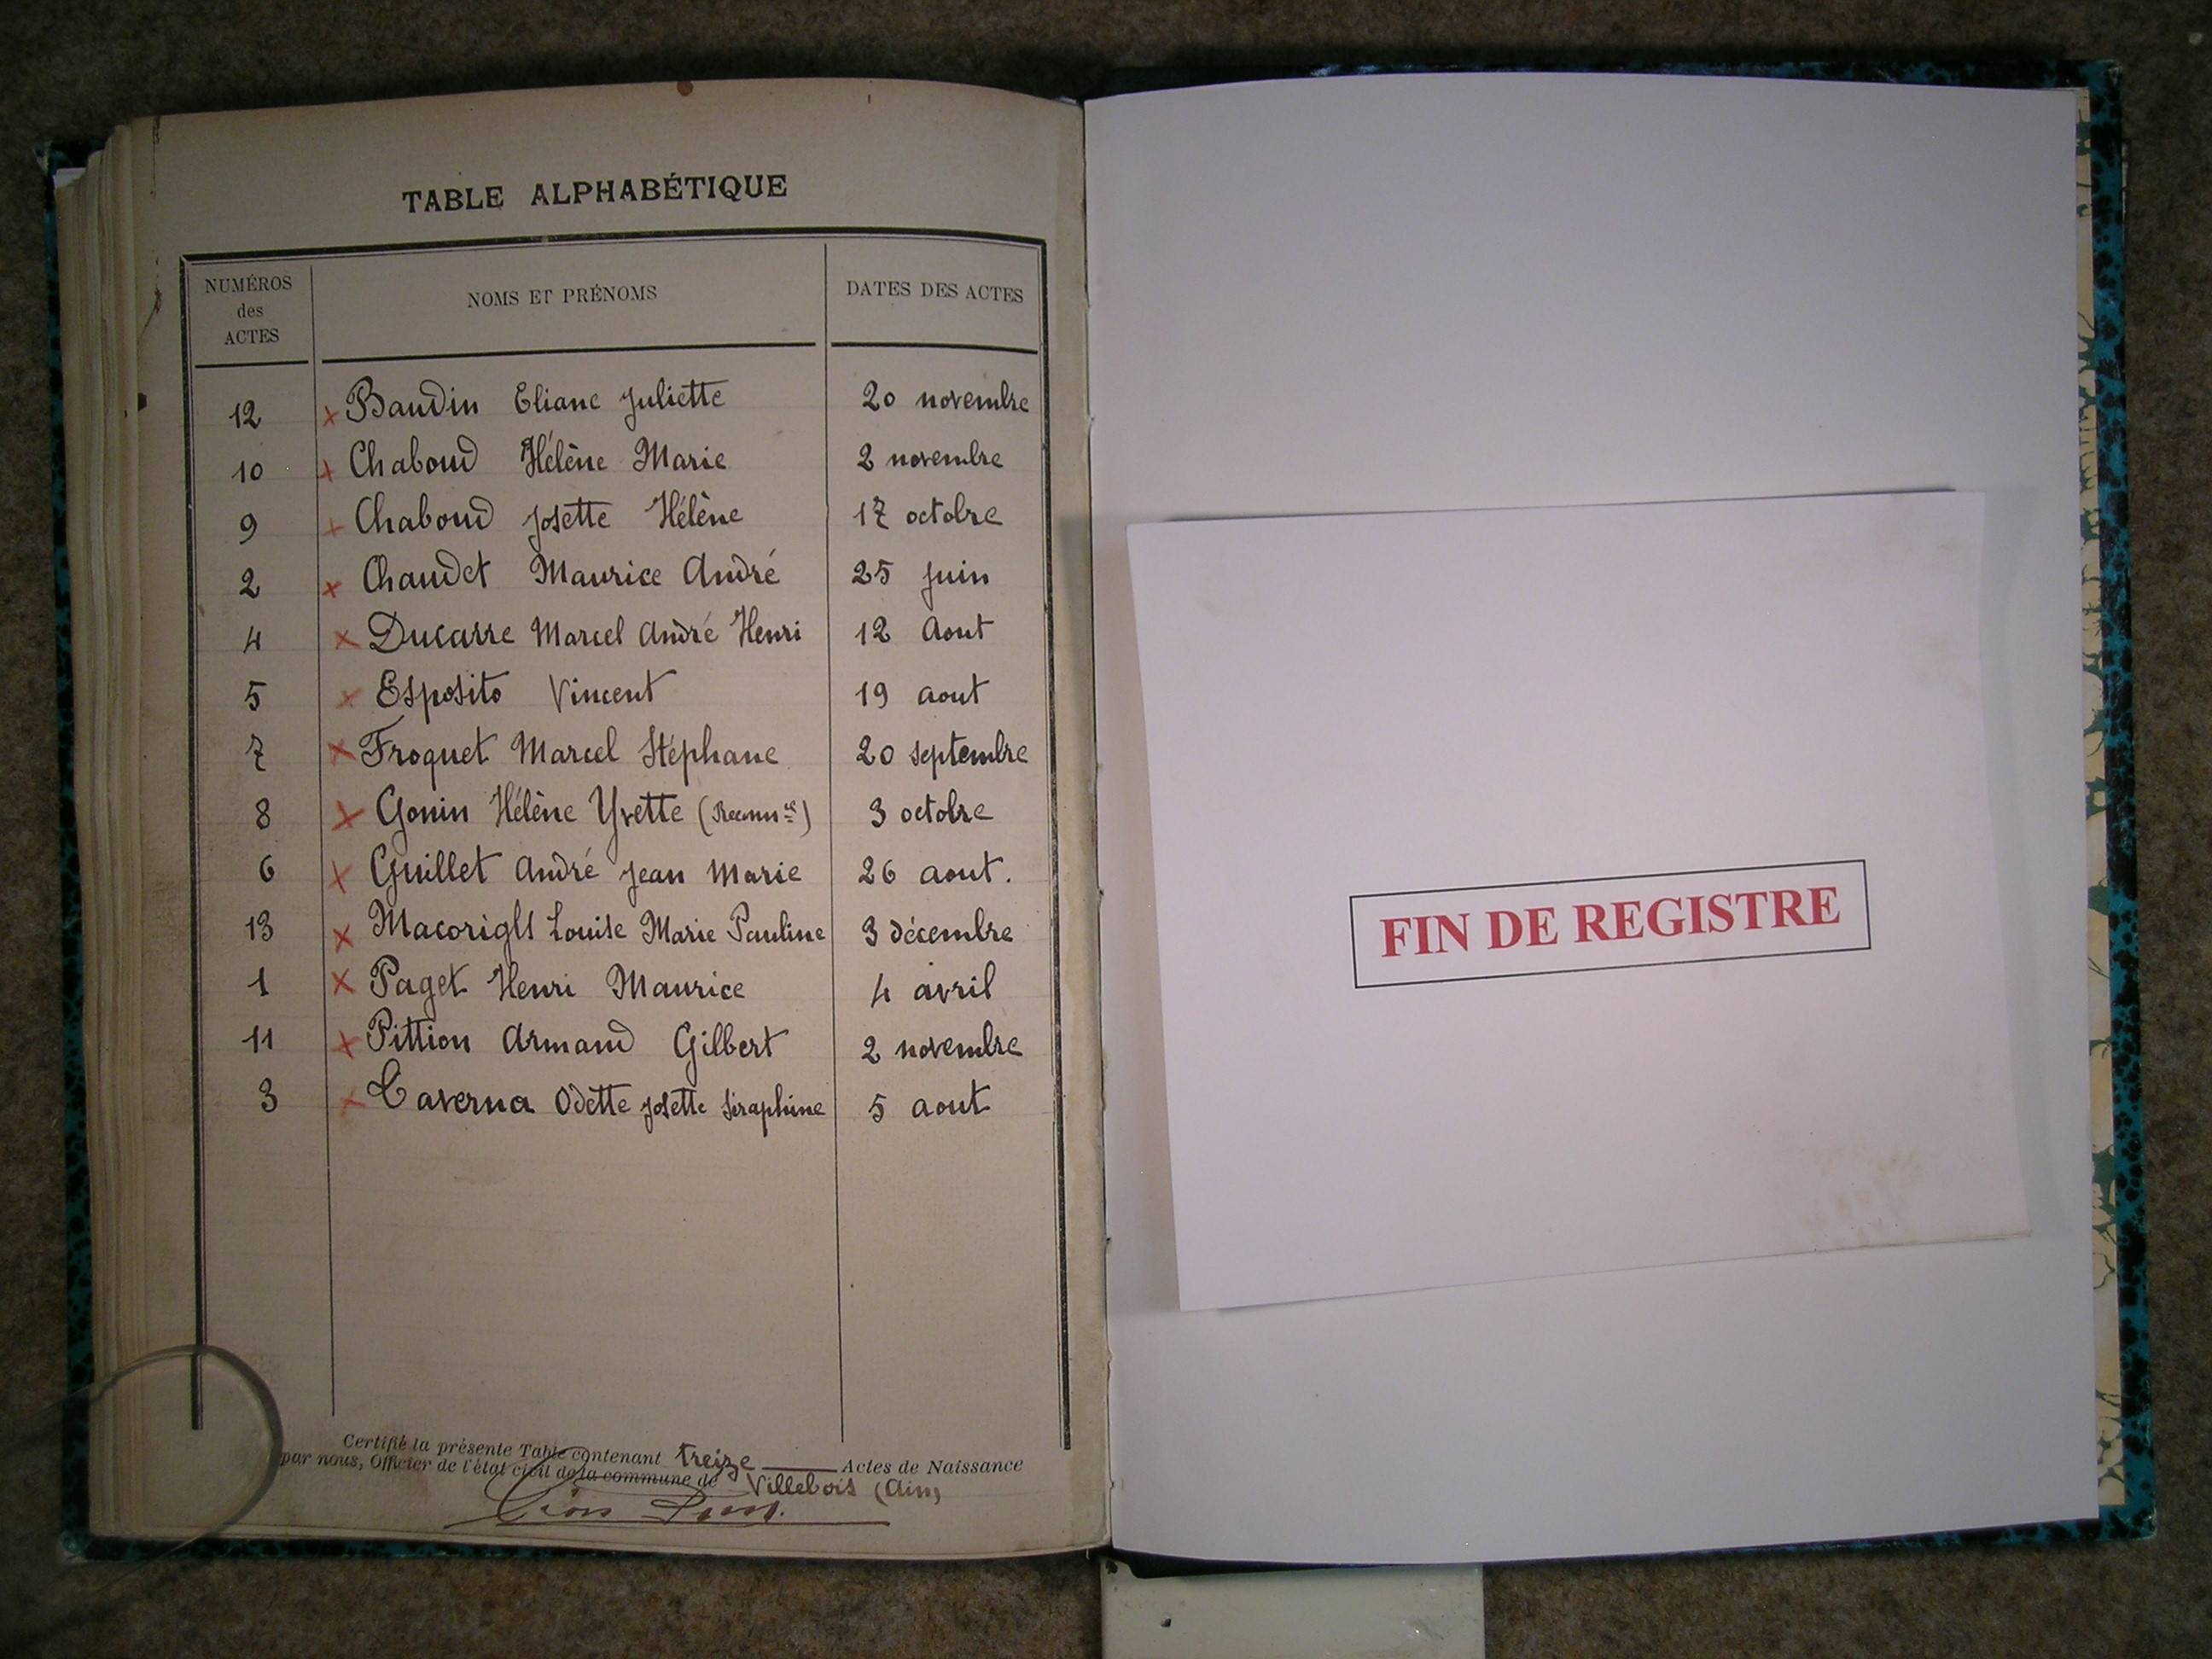 TABLE ALPHABÉTIQUE
NUMÉROS
des
ACTES
NOMS ET PRÉNOMS
DATES DES ACTES
12 × Baudin Eliane Juliette 20 novembre
10 × Chaboud Hélène Marie 2 novembre
9 × Chaboud Josette Hélène 17 octobre
2 × Chaudet Maurice André 25 juin
4 × Ducasse Marcel André Henri 12 Aout
5 × Esposito Vincent 19 aout
7 × Froquet Marcel Stéphane 20 septembre
8 × Gonin Hélène Yvette 3 octobre
6 × Guillet André Jean Marie 26 aout.
13 × Louise Marie Pauline 3 décembre
1 × Paget Henri Maurice 4 avril
11 × Pittion Armand Gilbert 2 novembre
3 × Taverna Odette Josette Séraphine 5 aout
Certifié la présente Table contenant treize Actes de Naissance
par nous, Officier de l'état civil de la commune de Villebois (Ain)
FIN DE REGISTRE